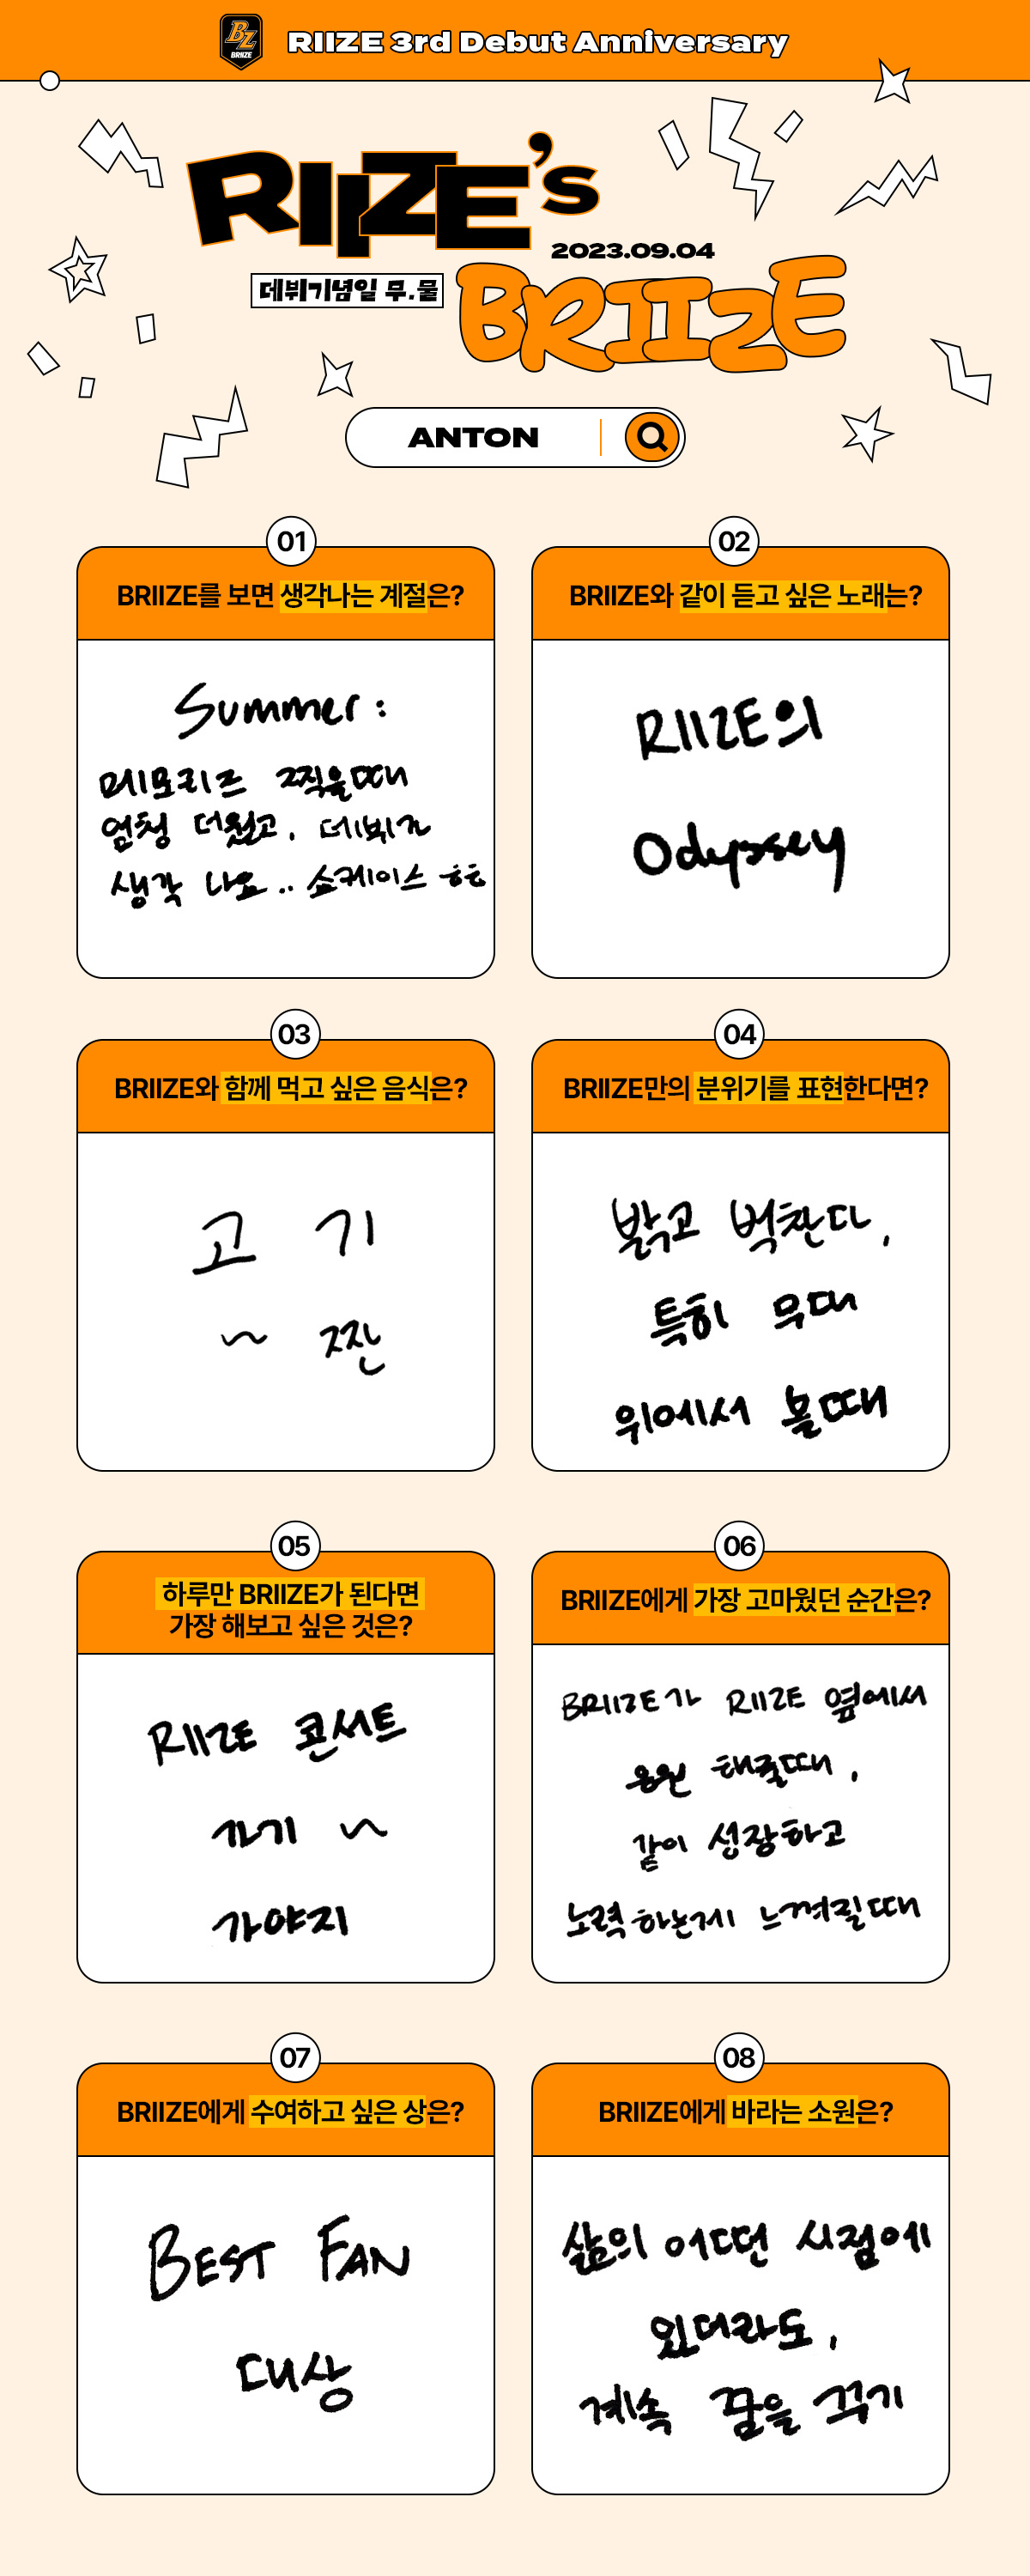 BZ
BRIIZE
RIIZE 3rd Debut Anniversary
RIIZE's
2023.09.04
데뷔기념일 무.물
BRIIZE
ANTON
01
BRIIZE를 보면 생각나는 계절은?
Summer:
메모리즈 찍을때
엄청 더웠고, 데뷔곡
생각 나요.. 쇼케이스 흐흐
02
BRIIZE와 같이 듣고 싶은 노래는?
RIIZE의
Odyssey
03
BRIIZE와 함께 먹고 싶은 음식은?
고기
~ 찐
04
BRIIZE만의 분위기를 표현한다면?
밝고 벅찬다,
특히 무대
위에서 볼때
05
하루만 BRIIZE가 된다면
가장 해보고 싶은 것은?
RIIZE 콘서트
가기 ~
가야지
06
BRIIZE에게 가장 고마웠던 순간은?
BRIIZE가 RIIZE 옆에서
응원 해줄때,
같이 성장하고
노력하는게 느껴질때
07
BRIIZE에게 수여하고 싶은 상은?
BEST FAN
대상
08
BRIIZE에게 바라는 소원은?
삶의 어떤 시점에
있더라도,
계속 꿈을 꾸기